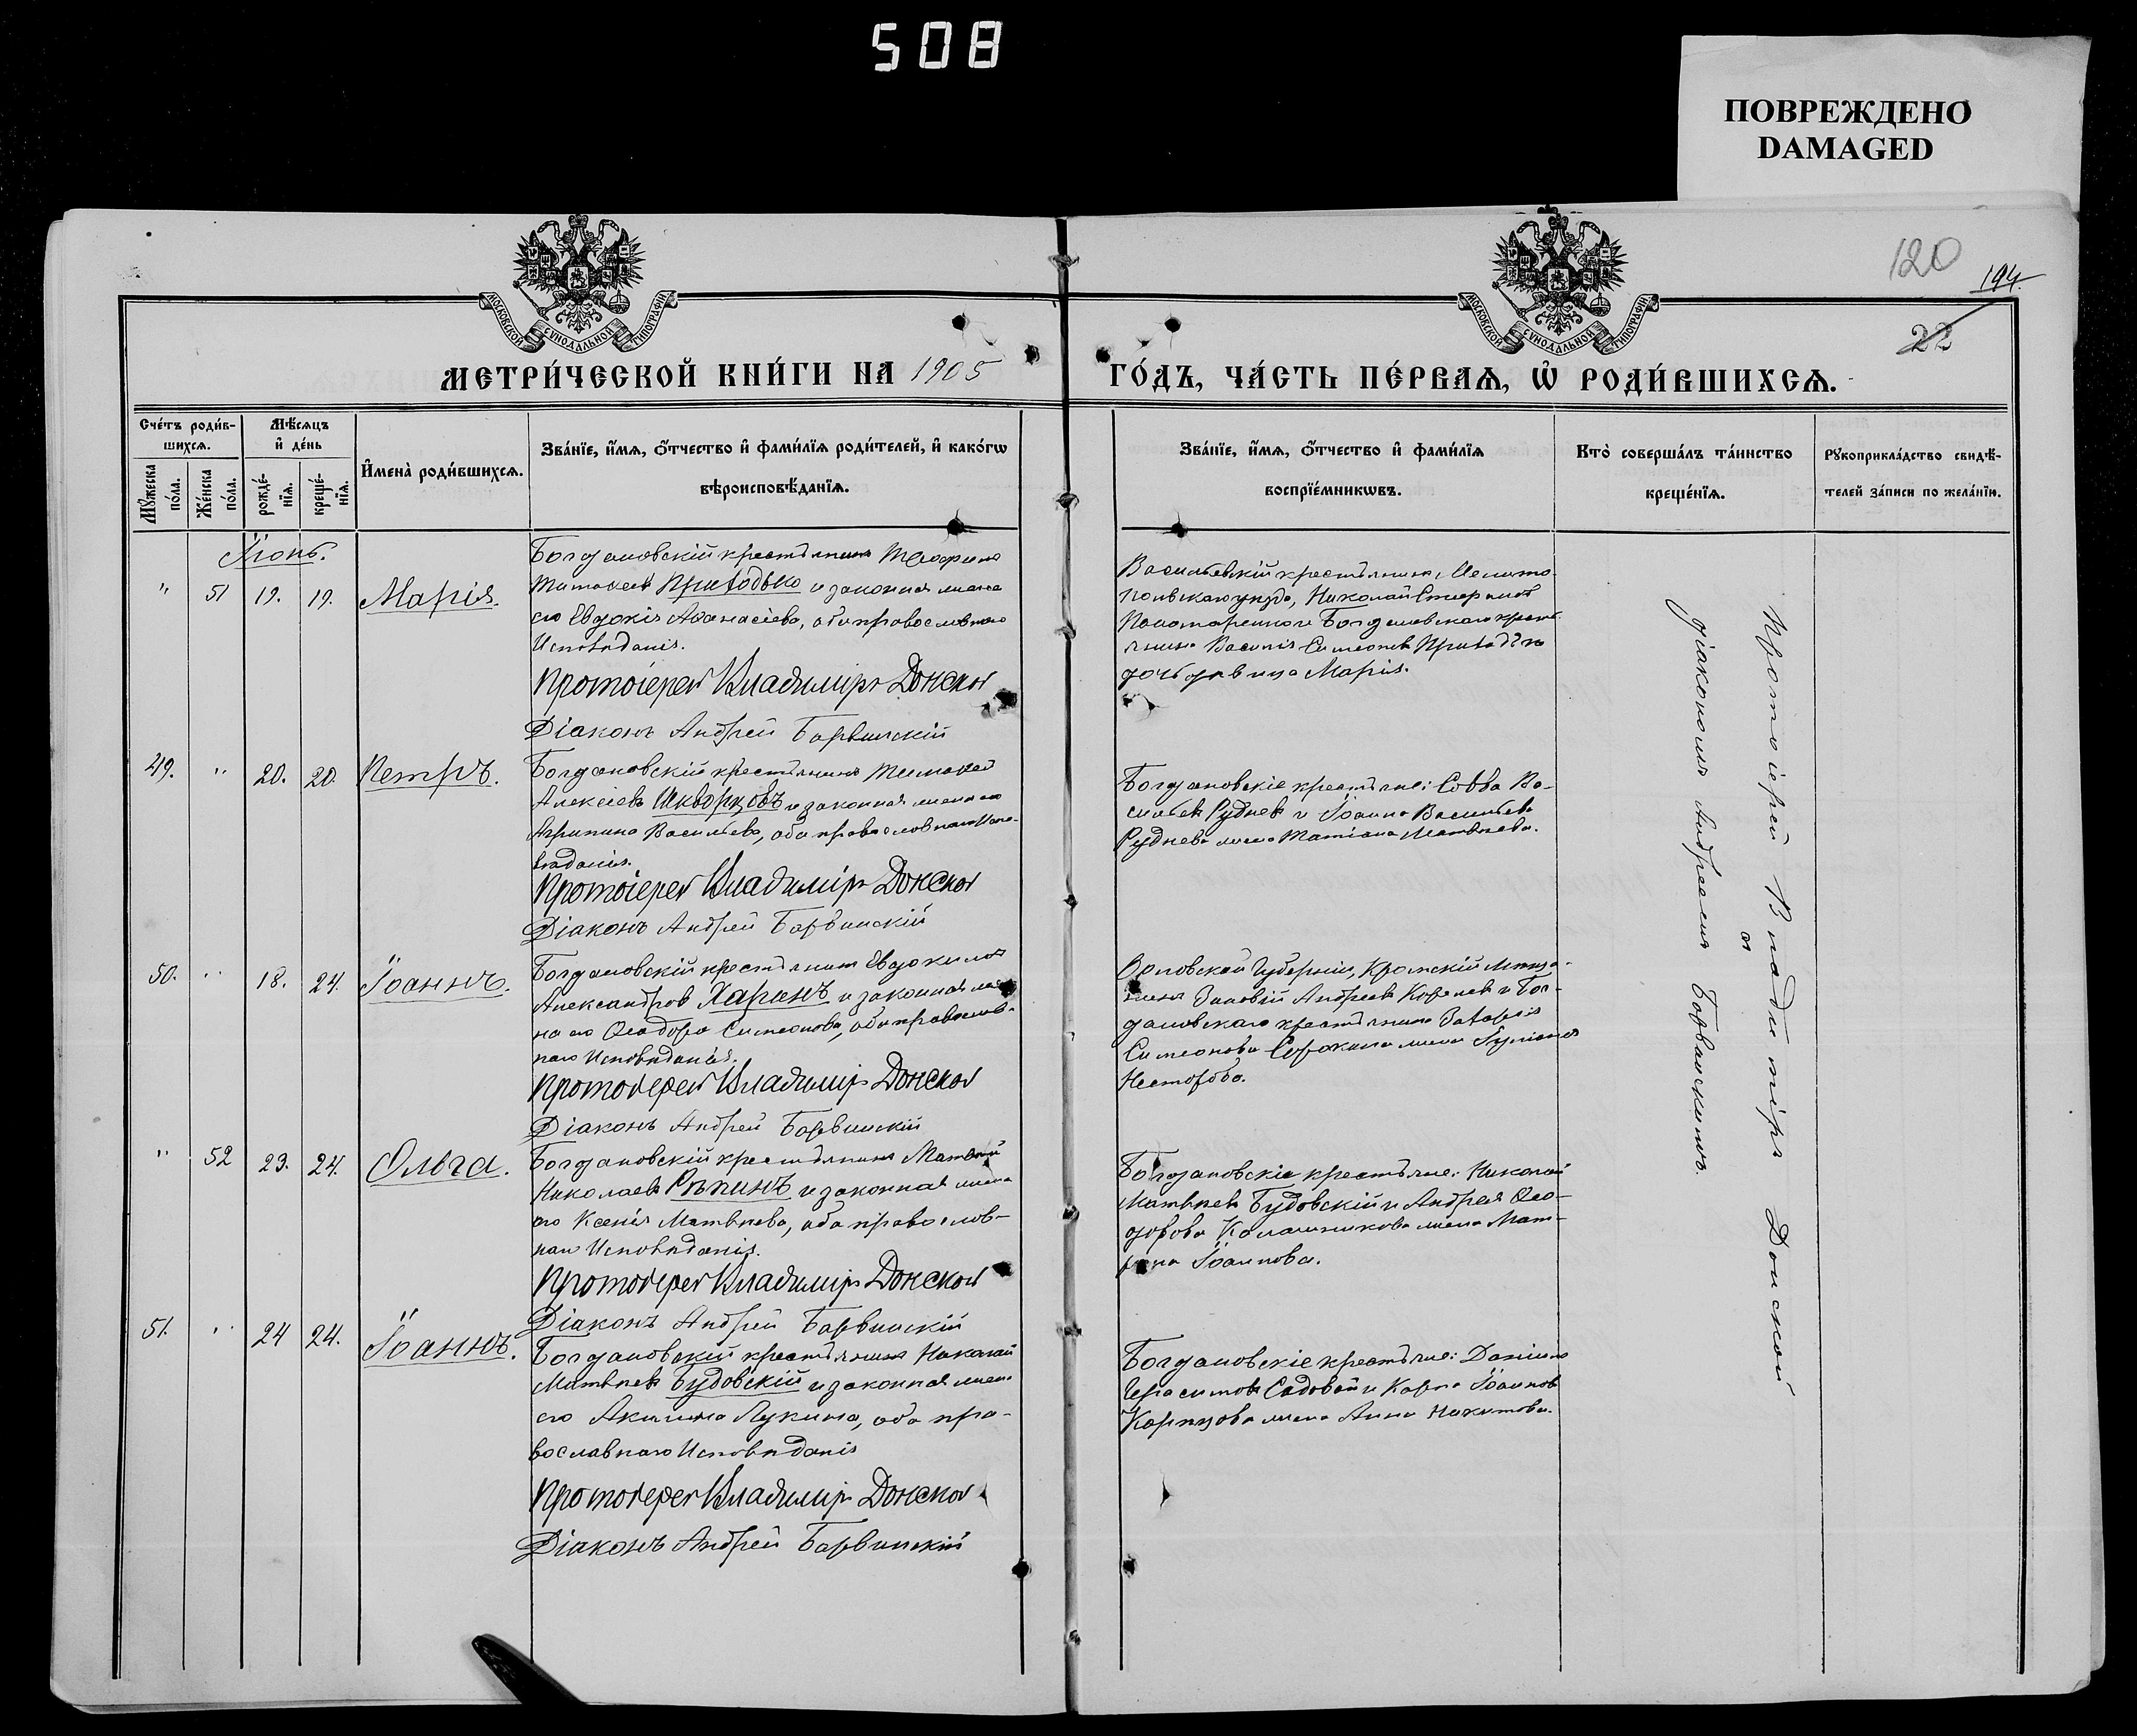 508
ПОВРЕЖДЕНО
DAMAGED
МОСКОВСКОЙ СѴНОДАЛЬНОЙ ТИПОГРАФІИ
МОСКОВСКОЙ СѴНОДАЛЬНОЙ ТИПОГРАФІИ
120
194.
22
МЕТРИ́ЧЕСКОЙ КНИ́ГИ НА 1905
ГО́ДЪ, ЧА́СТЬ ПЕ́РВАѦ, Ѡ҆ РОДИ́ВШИХСѦ.
Сче́тъ роди́в-
шихсѧ.
Мꙋ́жеска
по́ла.
Же́нска
по́ла.
Мѣ́сѧцъ
и҆ де́нь
рожде́-
нїѧ.
креще́-
нїѧ.
И҆мена̀ роди́вшихсѧ.
Зва́нїе, и҆́мѧ, ѻ҆́тчество и҆ фами́лїѧ роди́телей, и҆ како́гѡ
вѣроисповѣ́данїѧ.
Зва́нїе, и҆́мѧ, ѻ҆́тчество и҆ фами́лїѧ
воспрїе́мникѡвъ.
Кто̀ соверша́лъ та́инство
креще́нїѧ.
Рꙋкоприкла́дство свидѣ́-
телей за́писи по жела́нїи.
Іюнь.
" 51 19. 19. Марія.
Богдановскій крестьянинъ
Приходько и законная жена
его Евдокія Аѳанасіева, оба православнаго
Исповѣданія.
Протоіерей Владиміръ Донской
Діаконъ Андрей Барвинскій
Васильевскій крестьянинъ, Мелито-
польскаго уѣзда, Николай
Пономаренко и Богдановскаго кресть-
янина Василія Симеонова Приходько
дочь дѣвица Марія.
49. " 20. 20. Петръ.
Богдановскій крестьянинъ Тимоѳей
Алексіевъ Шкворцовъ и законная жена его
Агрипина Васильева, оба православнаго Испо-
вѣданія.
Протоіерей Владиміръ Донской
Діаконъ Андрей Барвинскій
Богдановскіе крестьяне: Савва Ва-
сильевъ Рудневъ и Іоанна Васильева
Руднева жена Татіана Матвѣева.
50. " 18. 24. Іоаннъ.
Богдановскій крестьянинъ Евдокимъ
Александровъ Харинъ и законная же-
на его Ѳеодора Симеонова, оба православ-
наго Исповѣданія.
Протоіерей Владиміръ Донской
Діаконъ Андрей Барвинскій
Орловской Губерніи, Кромскій мѣща-
нинъ Зиновій Андреевъ и Бог-
дановскаго крестьянина Захарія
Симеонова Сорокина жена Іуліанія
Несторова.
" 52 23. 24. Ольга.
Богдановскій крестьянинъ Матвѣй
Николаевъ Рѣпинъ и законная жена
его Ксенія Матвѣева, оба православ-
наго Исповѣданія.
Протоіерей Владиміръ Донской
Діаконъ Андрей Барвинскій
Богдановскіе крестьяне: Николай
Матвѣевъ Будовскій и Андрея Ѳео-
дорова Калашникова жена Мат-
рона Іоаннова.
51. " 24 24. Іоаннъ.
Богдановскій крестьянинъ Николай
Матвѣевъ Будовскій и законная жена
его Акилина Лукина, оба пра-
вославнаго Исповѣданія
Протоіерей Владиміръ Донской
Діаконъ Андрей Барвинскій
Богдановскіе крестьяне: Даніилъ
Герасимовъ Садовой и Карпа Іоаннова
жена Анна Никитова.
Протоіерей Владиміръ Донской
съ
діакономъ Андреемъ Барвинскимъ.